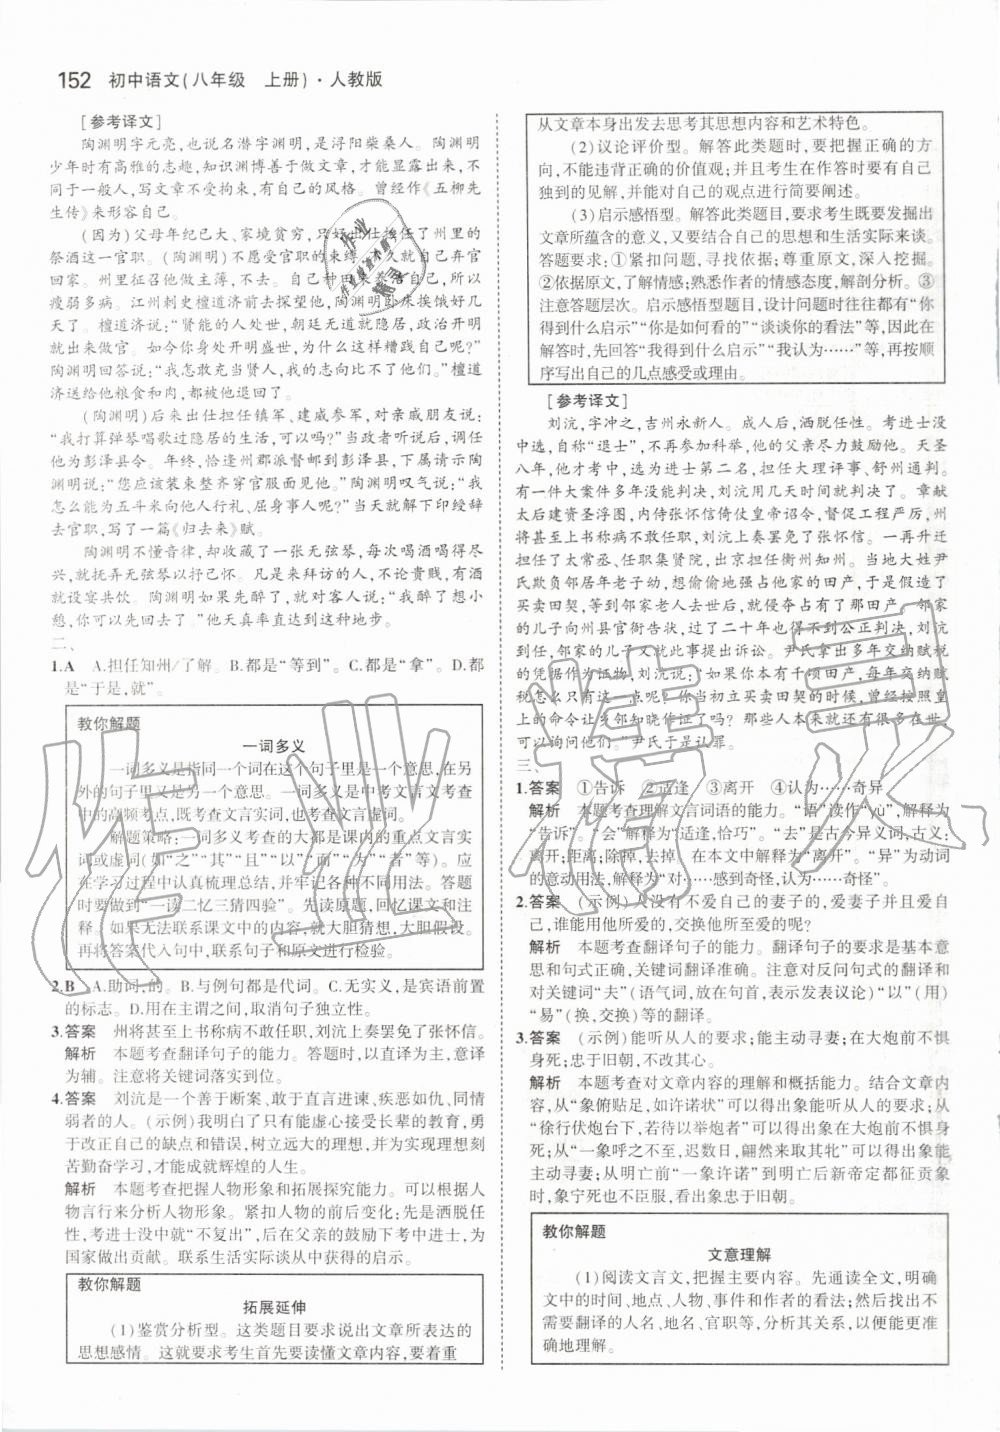 152 初中语文(八年级 上册)·人教版
[参考译文]
陶渊明字元亮,也说名潜字渊明,是浔阳柴桑人。陶渊明
少年时有高雅的志趣,知识渊博善于做文章,才能显露出来,不
同于一般人,写文章不受拘束,有自己的风格。曾经作《五柳先
生传》来形容自己。
(因为)父母年纪已大、家境贫穷,只好出仕接任了州里的
祭酒这一官职。(陶渊明)不愿受官职的束缚,不久就自己弃官
回家。州里征召他做主簿,不去。自己种田来养活自己,所以
瘦弱多病。江州刺史檀道济前去探望他,陶渊明卧床挨饿好几
天了。檀道济说:“贤能的人处世,朝廷无道就隐居,政治开明
就出来做官。如今你身处开明盛世,为什么这样糟践自己呢?”
陶渊明回答说:“我怎敢充当贤人,我的志向比不了他们。”檀道
济送给他粮食和肉,都被他退回了。
(陶渊明)后来出任担任镇军、建威参军,对亲戚朋友说:
“我打算弹琴唱歌过隐居的生活,可以吗?”当政者听说后,调任
他为彭泽县令。年终,恰逢州郡派督邮到彭泽县,下属请示陶
渊明说:“您应该装束整齐穿官服面见他。”陶渊明叹气说:“我
怎么能为五斗米折弯了腰、屈身事人呢?”当天就解下印绶辞
去官职,写了一篇《归去来》赋。
陶渊明不懂音律,却收藏了一张无弦琴,每次喝酒喝得尽
兴,就抚弄无弦琴以抒己怀。凡是来拜访的人,不论贵贱,有酒
就设宴共饮。陶渊明如果先醉,就对客人说:“我醉了想小
憩,你可以先回去了。”他天真率直达到这种地步。
二、
1.A A.担任知州/了解。B.都是“等到”。C.都是“拿”。D.都
是“于是,就”。
教你解题
一词多义
一词多义是指同一个词在这个句子里是一个意思,在另
外的句子里又是另一个意思。一词多义是中考文言文考查
的高频点,既考查文言实词,也考查文言虚词。
解题策略:一词多义考查的大都是课内的重点文言实
词或虚词(如“之”“其”“且”“以”“而”“为”“者”等)。应
在学习过程中认真梳理总结,并牢记各种不同用法。答题
时要做到“一读二忆三猜四验”。先读原题,回忆课文和注
释。如果无法联系课文中的内容,就大胆猜想,大胆假设。
再将答案代入句中,联系句子和原文进行检验。
2.B A.助词,的。B.与例句都是代词。C.无实义,是宾语前置
的标志。D.用在主谓之间,取消句子独立性。
3.答案 州将甚至上书称病不敢任职,刘沆上奏罢免了张怀信。
解析 本题考查翻译句子的能力。答题时,以直译为主,意译
为辅。注意将关键词落实到位。
4.答案 刘沆是一个善于断案、敢于直言进谏、疾恶如仇、同情
弱者的人。(示例)我明白了只有能虚心接受长辈的教育,勇
于改正自己的缺点和错误,树立远大的理想,并为实现理想刻
苦勤奋学习,才能成就辉煌的人生。
解析 本题考查把握人物形象和拓展探究能力。可以根据人
物言行来分析人物形象。紧扣人物的变化。先是洒脱任性,
考进士没中就“不复出”,后在父亲的鼓励下考中进士,为
国家做出贡献。联系生活实际谈从中获得的启示。
教你解题
拓展延伸
(1)鉴赏分析型。这类题目要求说出文章所表达的
思想感情。这就要求考生首先要读懂文章内容,要着重
从文章本身出发去思考其思想内容和艺术特色。
(2)议论评价型。解答此类题时,要把握正确的方
向,不能违背正确的价值观;并且考生在作答时要有自己
独到的见解,并能对自己的观点进行简要阐述。
(3)启示感悟型。解答此类题目,要求考生既要发掘出
文章所蕴含的意义,又要结合自己的思想和生活实际来谈。
答题要求:①紧扣问题,寻找依据;尊重原文,深入挖掘。
②依据原文,了解感情;熟悉作者的情感态度,解剖分析。③
注意答题层次。启示感悟型题目,设计问题时往往都有“你
得到什么启示”“你是如何看的”“谈谈你的看法”等,因此在
解答时,先回答“我得到什么启示”“我认为……”等,再按顺
序写出自己的几点感受或理由。
[参考译文]
刘沆,字冲之,吉州永新人。成人后,洒脱任性。考进士没
中选,自称“退士”,不再参加科举,他的父亲尽力鼓励他。天圣
八年,他才考中,选为进士第二名,担任大理评事、舒州通判。
有一件大案件多年没能判决,刘沆用几天时间就判决了。章献
太后建资圣浮图,内侍张怀信倚仗皇帝诏令,督促工程严厉,州
将甚至上书称病不敢任职,刘沆上奏罢免了张怀信。一再升迁
担任了太常丞、任职集贤院,出京担任衡州知州。当地大姓尹
氏欺负邻居年老子幼,想要侵夺他家的田产,于是伪造了
买卖田契,等到邻家老人去世后,就抢夺占有了那田产。邻家
的儿子向州县官衙告状,过了二十年也得不到公正判决,刘沆
到任,邻家的儿子又就此提出诉讼。尹氏拿出多年交纳赋税
的凭据作为物证,刘沆说:“像这样的千顷良田,每年交纳赋
税怎么只有这一点呢?你当初立买卖田契的时候,曾经按照皇
上的命令让乡邻知晓作证了吗?那些人本来就还有多在世,
可以询问他们。”尹氏于是认罪。
三、
1.答案 ①告诉 ②适逢 ③离开 ④认为……奇异
解析 本题考查理解文言词语的能力。“语”读作“yù”,解释为
“告诉”。“会”解释为“适逢、恰巧”。“去”是古今异义词,古义:
离开;距离;除掉,去掉。在本文中解释为“离开”。“异”为动词
的意动用法,解释为“对……感到奇怪,认为……奇怪”。
2.答案 (示例)人没有不爱自己的妻子的,爱妻子并且爱自
己,谁能用他所爱的,交换他所至爱的呢?
解析 本题考查翻译句子的能力。翻译句子的要求是基本
意思和句式正确,关键词翻译准确。注意对反问句式的翻译和
对关键词“夫”(语气词,放在句首,表示发表议论)“以”(用)
“易”(换,交换)等的翻译。
3.答案 (示例)能听从人的要求;能主动寻妻;在大炮前不惧
身死;忠于旧朝,不改其心。
解析 本题考查对文章内容的理解和概括能力。结合文章内
容,从“象俯贴足,如许诺状”可以得出象能听从人的要求;从
“徐行伏炮台下,若待以举炮者”可以得出象在大炮前不惧身
死;从“一象呼之不至,迟数日,翩然来取其牝”可以得出象能
主动寻妻;从明亡前“一象许诺”到明亡后新帝定都征贡象
时,象宁死也不臣服,看出象忠于旧朝。
教你解题
文意理解
(1)阅读文言文,把握主要内容。先通读全文,明确
文中的时间、地点、人物、事件和作者的看法;然后找出不
需要翻译的人名、地名、官职等,分析其关系,以便能更准
确地理解。